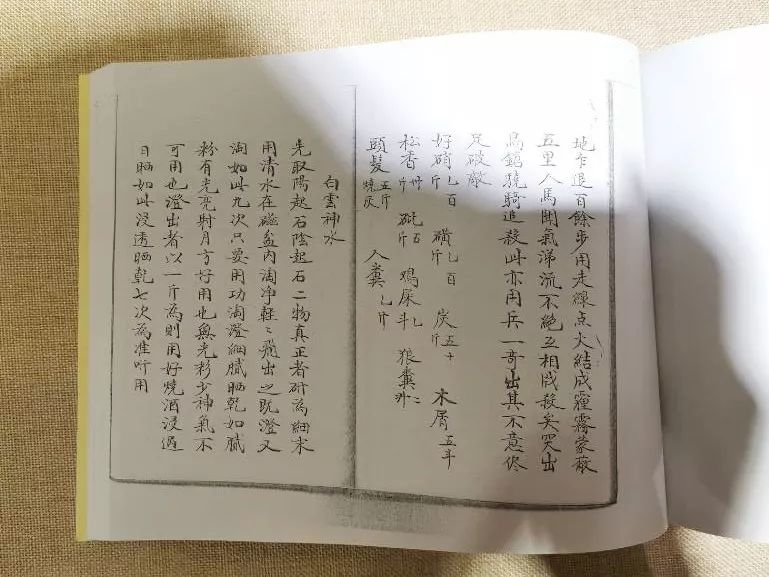 地乍退百餘步用走線点火結成霾霧蒙蔽
五里人馬聞氣涕流不絕互相戕殺矣突出
馬鎗驍騎追殺此亦用兵一奇出其不意俻
足破敵
好硝乙百斤 磺乙百斤 炭五十斤 木屑五斗
松香卅斤 砒五斤 鳴屎乙斗 狼糞二升
頭髮五斤燒灰 人糞乙斤
白雲神水
先取陽起石陰起石二物真正者研為細末
用清水在磁盆内淘净軽々飛出之既澄又
淘如此九次只要用功淘澄細膩晒乾如膩
粉有光亮射月方好用也無光彩少神氣不
可用也澄出者以一斤為則用好燒酒浸過
日晒如此浸透晒乾七次為准听用